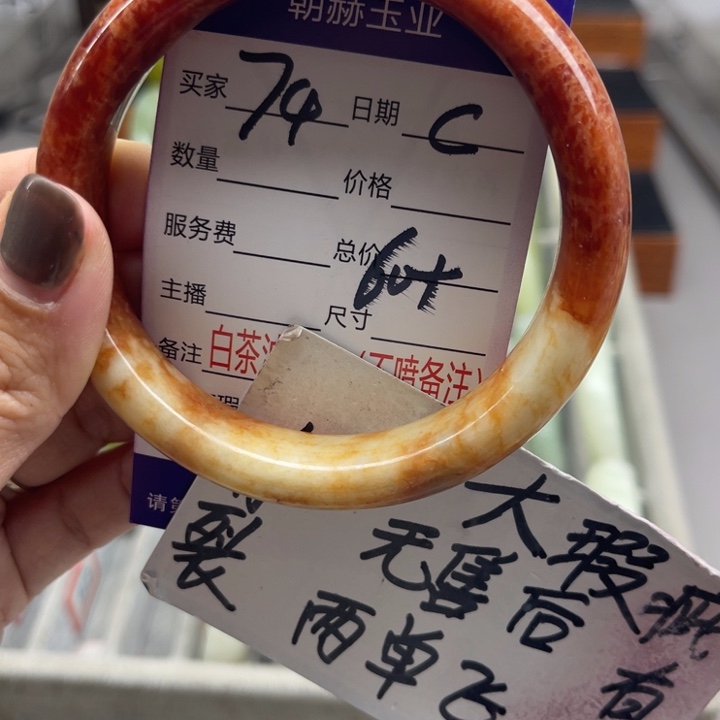 朝赫玉业
买家 74 日期 C
数量 价格
服务费 总价 60+
主播 尺寸
备注 白茶 (不喷备注)
瑕
请
裂 大瑕疵
无售后 有
两单飞